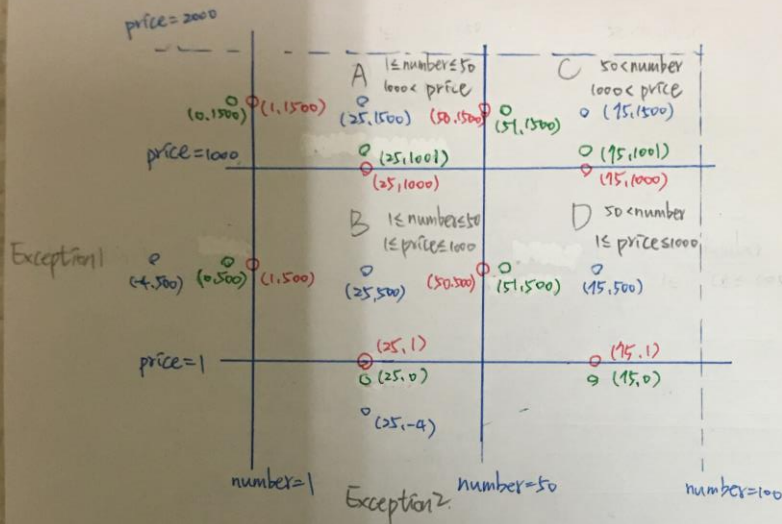 price=2000
A 1≤number≤50
1000< price
C 50<number
1000< price
(0,1500) (1,1500) (25,1500) (50,1500) (51,1500) (75,1500)
price=1000 (25,1001) (75,1001)
(25,1000) (75,1000)
B 1≤number≤50
1≤price≤1000
D 50<number
1≤price≤1000
Exception1
(-4,500) (0,500) (1,500) (25,500) (50,500) (51,500) (75,500)
(25,1) (75,1)
price=1 (25,0) (75,0)
(25,-4)
number=1 number=50 number=100
Exception2